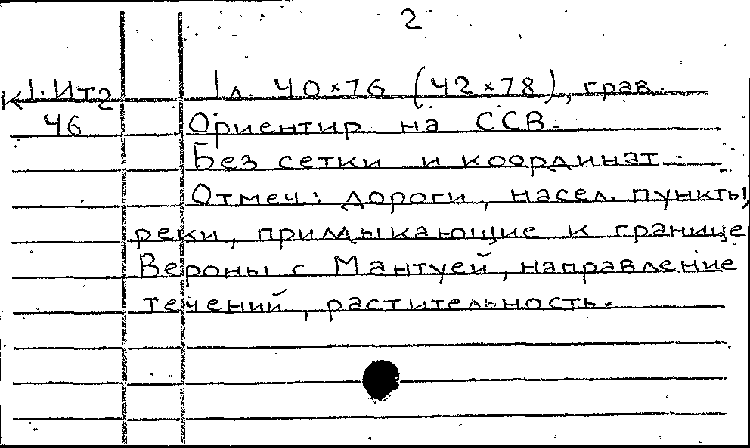 2
К1.Ит2 1 л. 40×76 (42×78), грав.
46 Ориентир на ССВ.
Без сетки и координат.
Отмеч: дороги, насел. пункты,
реки, примыкающие к границе
Вероны с Мантуей, направление
течений, растительность.